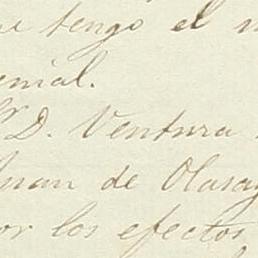 tengo el
enial.
D. Ventura
Juan de Olasa
or los efectos